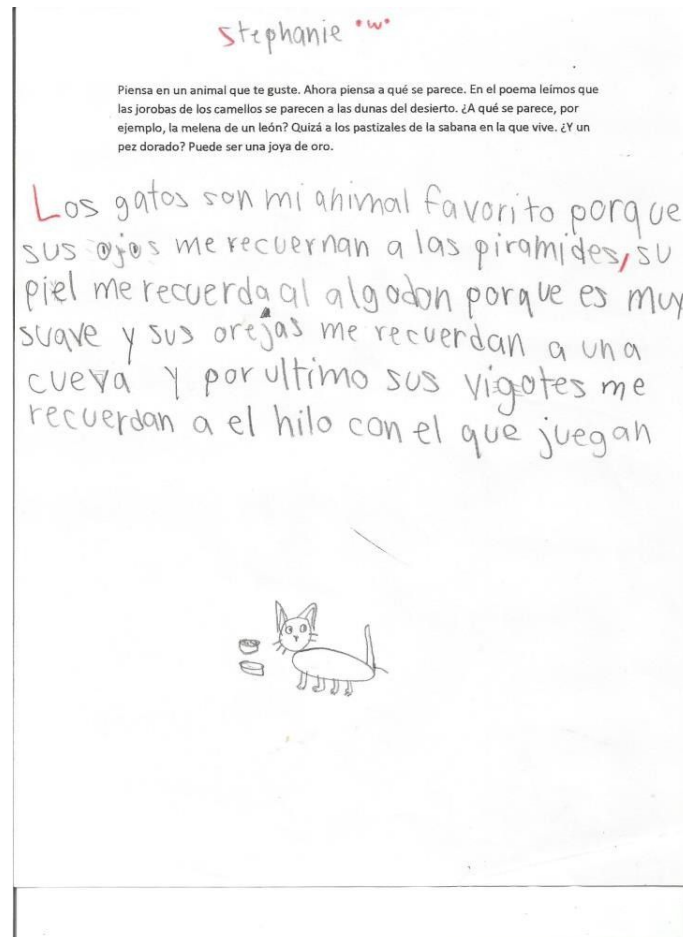 Stephanie •w•
Piensa en un animal que te guste. Ahora piensa a qué se parece. En el poema leímos que
las jorobas de los camellos se parecen a las dunas del desierto. ¿A qué se parece, por
ejemplo, la melena de un león? Quizá a los pastizales de la sabana en la que vive. ¿Y un
pez dorado? Puede ser una joya de oro.
Los gatos son mi animal favorito porque
sus ojos me recuernan a las piramides, su
piel me recuerda al algodon porque es muy
suave y sus orejas me recuerdan a una
cueva y por ultimo sus vigotes me
recuerdan a el hilo con el que juegan